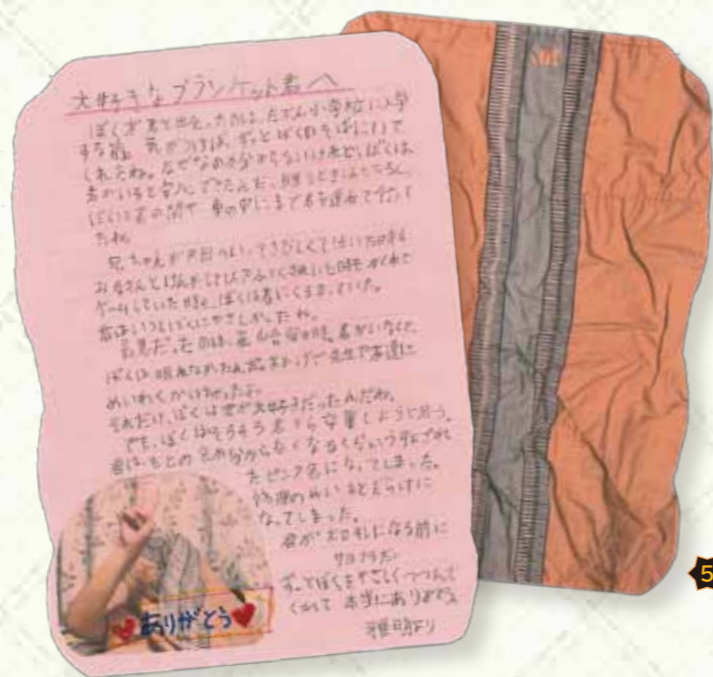 大好きなブランケット君へ
ぼくが君と出会ったのは、たぶん小学校に入学
する前。気がつけば、ずっとぼくのそばにいて
くれたね。なぜなのか分からないけれど、ぼくは
君がいると安心できたんだ。眠るときはもちろん、
君を連れて行って
たね。
兄ちゃんが
お母さんとけんかして
ゲームしていた時も、ぼくは君にくるまっていた。
君はいつもぼくにやさしかったね。
君がいなくて、
ぼくは眠れなかったんだ。おかげで先生や友達に
めいわくかけちゃったよ。
それだけ、ぼくは君が大好きだったんだね。
でも、ぼくはそろそろ君から卒業しようと思う。
君は、もとの色が分からなくなるくらい
ピンク色になってしまった。
だらけに
なってしまった。
君がボロボロになる前に
サヨナラだ。
ずっとぼくをやさしくつつんで
くれて 本当にありがとう
雅明より
ありがとう
5